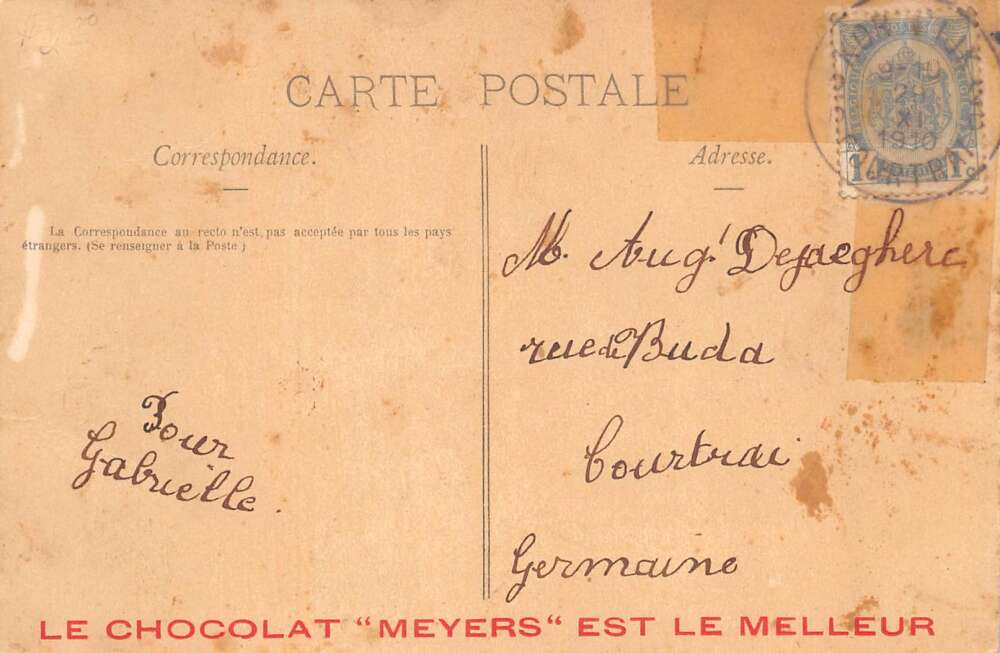 CARTE POSTALE
Correspondance.
Adresse.
La Correspondance au recto n'est, pas acceptée par tous les pays
étrangers. (Se renseigner à la Poste)
M. Aug! Dejaeghere
rue de Buda
Courtrai
Germaine
Pour
Gabrielle.
29
XI
1910
1
LE CHOCOLAT "MEYERS" EST LE MELLEUR